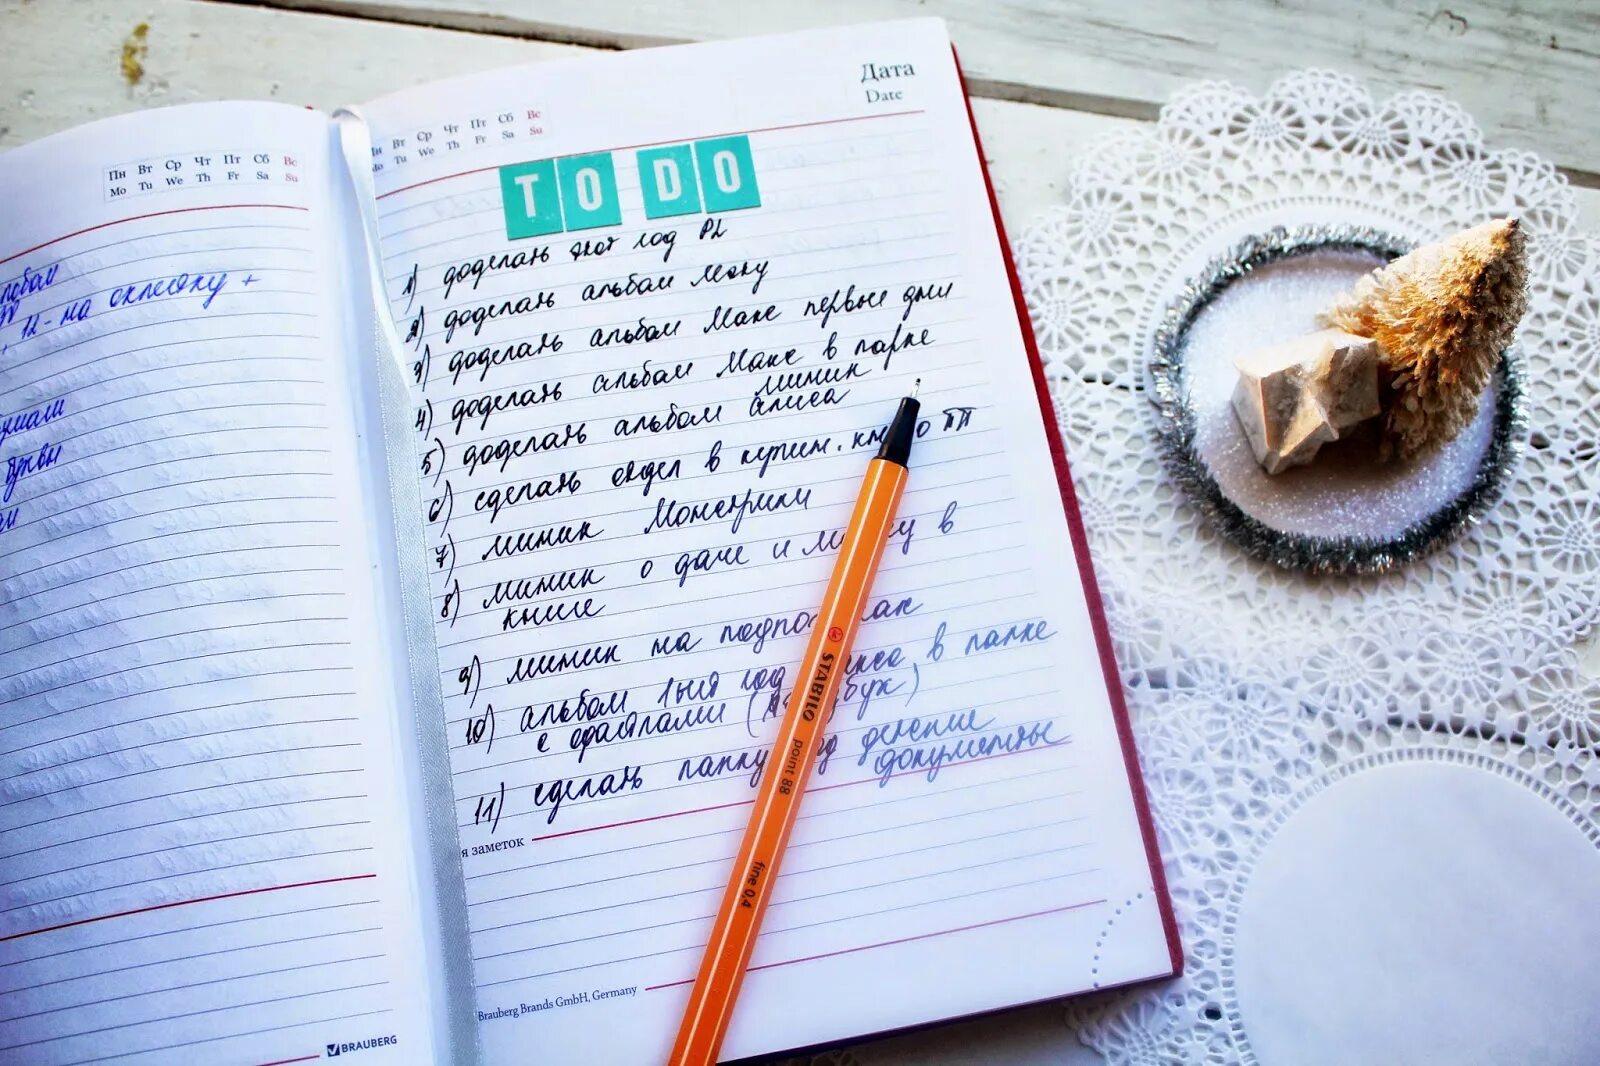 Пн Вт Ср Чт Пт Сб Вс
Mo Tu We Th Fr Sa Su
12-на оклейку +
буквы
BRAUBERG
Вт Ср Чт Пт Сб Вс
Tu We Th Fr Sa Su
Дата
Date
TO DO
1) доделать этот год PL
2) доделать альбом Маку
3) доделать альбом Макс первые дни
4) доделать альбом Макс в парке
5) доделать альбом Алиса
миник
6) сделать в кулин. ПП
7) миник Монстрики
8) миник о даче и в
книге
9) миник на
10) альбом 1ый год в папке
с
11) сделать папку детские
документы
заметок
Brauberg Brands GmbH, Germany
STABILO point 88 fine 0,4